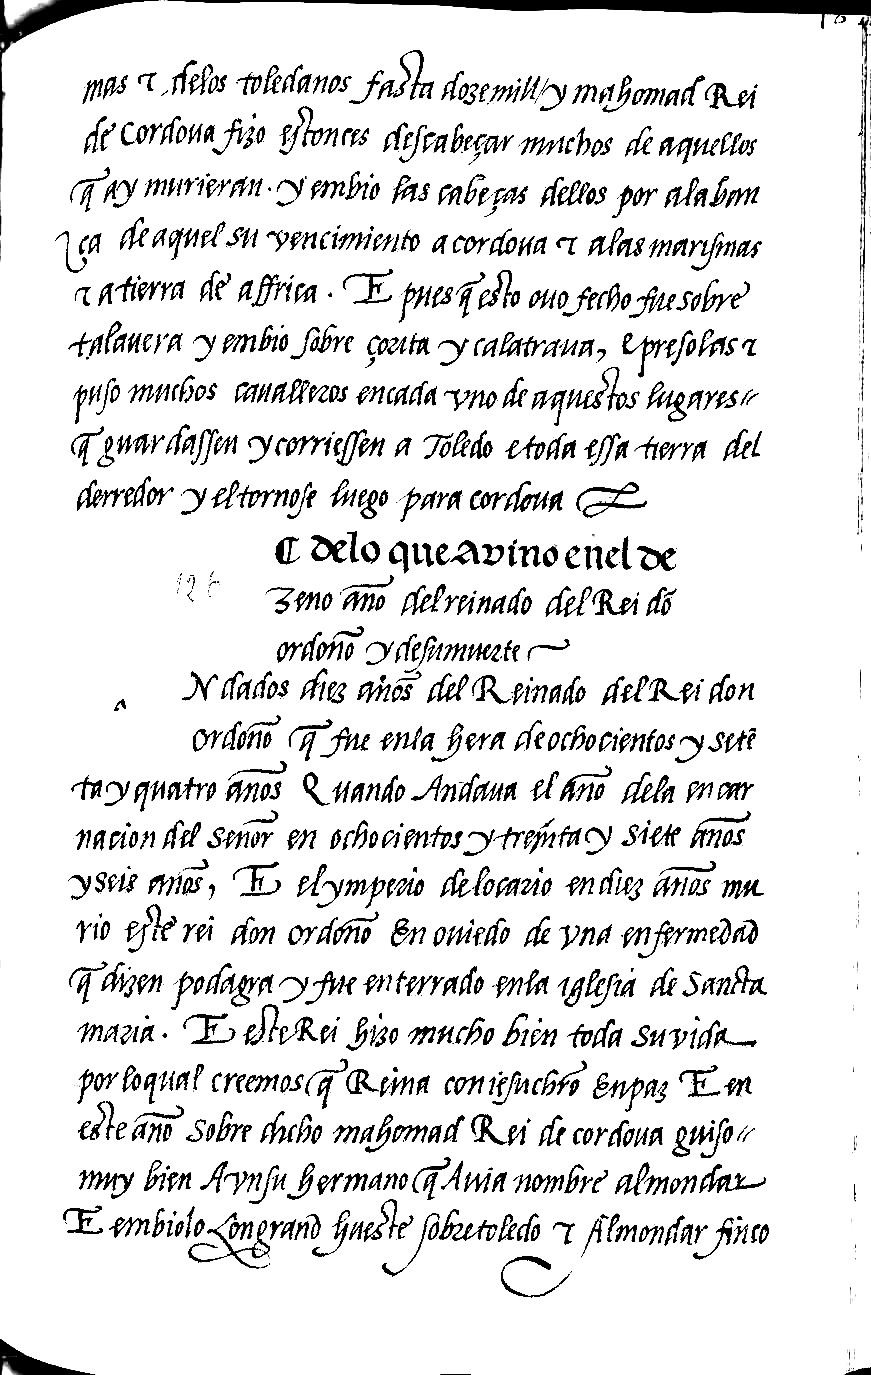 mas ⁊ delos toledanos fasta doze mill y mahomad Rei
de Cordoua fizo estonces descabeçar muchos de aquellos
q̃ ay murieran. y embio las cabeças dellos por alaban
ça de aquel su vencimiento a cordoua ⁊ alas marismas
⁊ a tierra de affrica. E pues q̃ esto ouo fecho fue sobre
talauera y embio sobre çorita y calatraua, e presolas ⁊
puso muchos caualleros encada vno de aquestos lugares
q̃ guardassen y corriessen a Toledo e toda essa tierra del
derredor y el tornose luego para cordoua
C delo que avino enel de
Zeno año del reinado del Rei dõ
ordoño y de su muerte
N dados diez años del Reinado del Rei don
Ordoño q̃ fue enla hera de ochocientos y setẽ
ta y quatro años Quando Andaua el año dela encar
nacion del Señor en ochocientos y treynta y siete años
y seis años, E el ymperio de locario en diez años mu
rio este rei don ordoño En ouiedo de vna enfermedad
q̃ dizen podagra y fue enterrado enla iglesia de Sancta
maria. E este Rei hizo mucho bien toda su vida
por lo qual creemos q̃ Reina con iesuchrõ En paz E en
este año sobre dicho mahomad Rei de cordoua guiso
muy bien A vn su hermano q̃ Auia nombre almondar
E embiolo Con grand hueste sobre toledo ⁊ Almondar finco